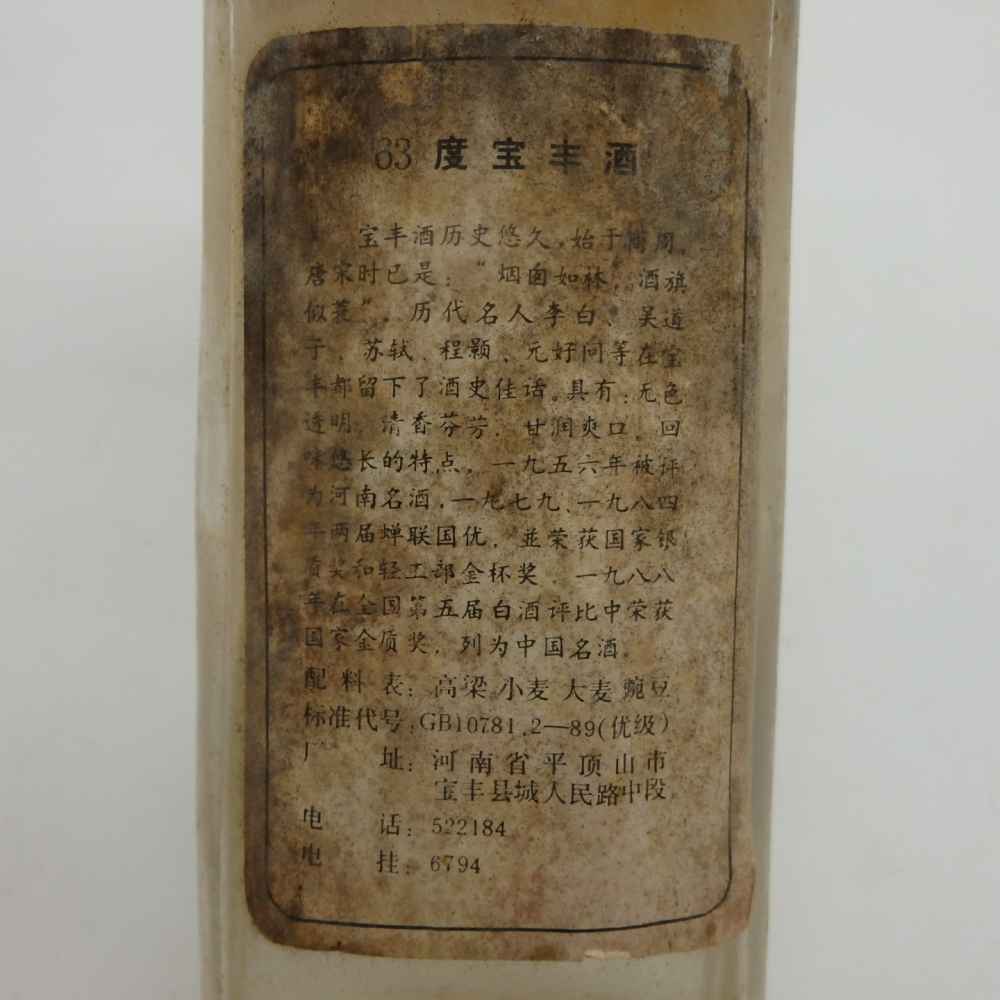 63度宝丰酒
宝丰酒历史悠久，始于商周，
唐宋时已是：“烟囱如林，酒旗
似荗”。历代名人李白、吴道
子、苏轼、程颢、元好问等在宝
丰都留下了酒史佳话。具有：无色
透明，清香芬芳，甘润爽口，回
味悠长的特点。一九五六年被评
为河南名酒，一九七九、一九八四
年两届蝉联国优，並荣获国家银
质奖和轻工部金杯奖，一九八八
年在全国第五届白酒评比中荣获
国家金质奖，列为中国名酒。
配料表：高梁 小麦 大麦 豌豆
标准代号：GB10781.2—89(优级)
厂址：河南省平顶山市
宝丰县城人民路中段
电话：522184
电挂：6794